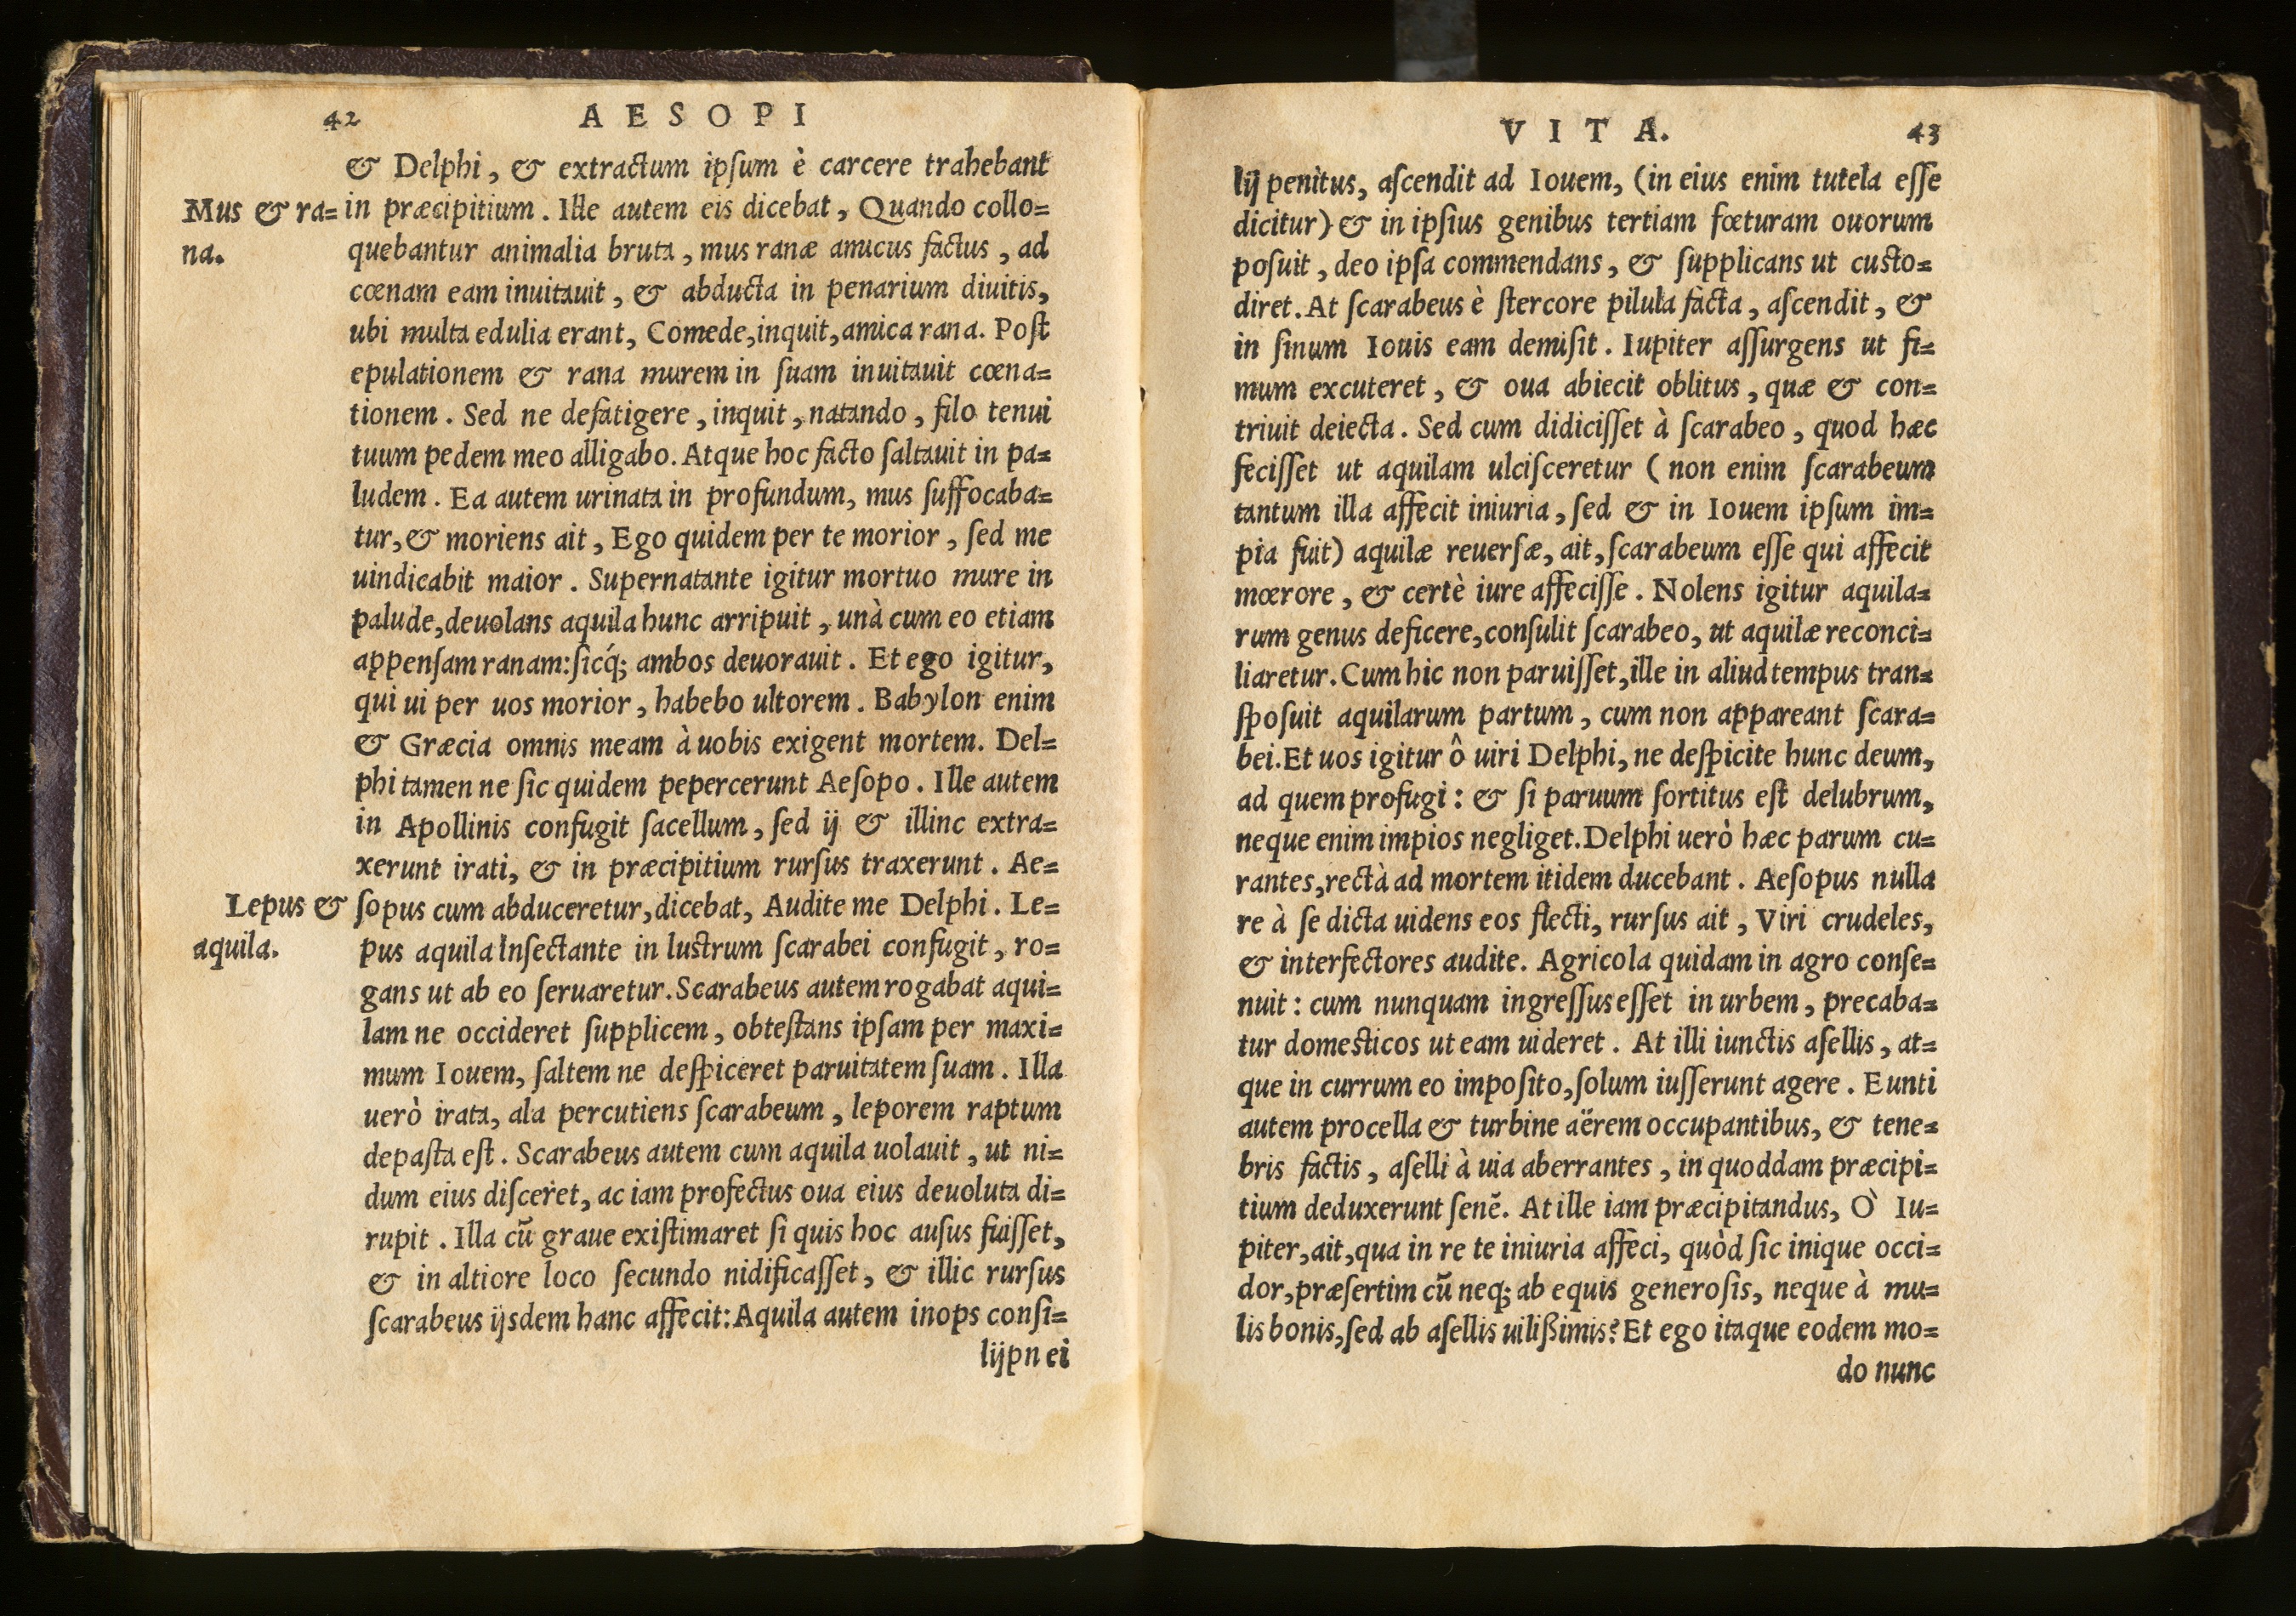 42 AESOPI
& Delphi, & extractum ipſum è carcere trahebant
Mus & ra=
na.
in præcipitium. Ille autem eis dicebat, Quando collo=
quebantur animalia bruta, mus ranæ amicus factus, ad
cœnam eam inuitauit, & abducta in penarium diuitis,
ubi multa edulia erant, Comede, inquit, amica rana. Poſt
epulationem & rana murem in ſuam inuitauit cœna=
tionem. Sed ne defatigere, inquit, natando, filo tenui
tuum pedem meo alligabo. Atque hoc facto ſaltauit in pa=
ludem. Ea autem urinata in profundum, mus ſuffocaba=
tur, & moriens ait, Ego quidem per te morior, ſed me
uindicabit maior. Supernatante igitur mortuo mure in
palude, deuolans aquila hunc arripuit, unà cum eo etiam
appenſam ranam: ſicq́; ambos deuorauit. Et ego igitur,
qui ui per uos morior, habebo ultorem. Babylon enim
& Græcia omnis meam à uobis exigent mortem. Del=
phi tamen ne ſic quidem pepercerunt Aeſopo. Ille autem
in Apollinis confugit ſacellum, ſed ij & illinc extra=
xerunt irati, & in præcipitium rurſus traxerunt. Ae=
Lepus &
aquila.
ſopus cum abduceretur, dicebat, Audite me Delphi. Le=
pus aquila Inſectante in luſtrum ſcarabei confugit, ro=
gans ut ab eo ſeruaretur. Scarabeus autem rogabat aqui=
lam ne occideret ſupplicem, obteſtans ipſam per maxi=
mum Iouem, ſaltem ne deſpiceret paruitatem ſuam. Illa
uerò irata, ala percutiens ſcarabeum, leporem raptum
depaſta eſt. Scarabeus autem cum aquila uolauit, ut ni=
dum eius diſceret, ac iam profectus oua eius deuoluta di=
rupit. Illa cũ graue exiſtimaret ſi quis hoc auſus fuiſſet,
& in altiore loco ſecundo nidificaſſet, & illic rurſus
ſcarabeus ijsdem hanc affecit: Aquila autem inops conſi=
lijpn ei
VITA. 43
lij penitus, aſcendit ad Iouem, (in eius enim tutela eſſe
dicitur) & in ipſius genibus tertiam fœturam ouorum
poſuit, deo ipſa commendans, & ſupplicans ut cuſto=
diret. At ſcarabeus è ſtercore pilula facta, aſcendit, &
in ſinum Iouis eam demiſit. Iupiter aſſurgens ut fi=
mum excuteret, & oua abiecit oblitus, quæ & con=
triuit deiecta. Sed cum didiciſſet à ſcarabeo, quod hæc
feciſſet ut aquilam ulciſceretur (non enim ſcarabeum
tantum illa affecit iniuria, ſed & in Iouem ipſum im=
pia fuit) aquilæ reuerſæ, ait, ſcarabeum eſſe qui affecit
mœrore, & certè iure affeciſſe. Nolens igitur aquila=
rum genus deficere, conſulit ſcarabeo, ut aquilæ reconci=
liaretur. Cum hic non paruiſſet, ille in aliud tempus tran=
ſpoſuit aquilarum partum, cum non appareant ſcara=
bei. Et uos igitur ô uiri Delphi, ne deſpicite hunc deum,
ad quem profugi: & ſi paruum ſortitus eſt delubrum,
neque enim impios negliget. Delphi uerò hæc parum cu=
rantes, rectà ad mortem itidem ducebant. Aeſopus nulla
re à ſe dicta uidens eos flecti, rurſus ait, Viri crudeles,
& interfectores audite. Agricola quidam in agro conſe=
nuit: cum nunquam ingreſſus eſſet in urbem, precaba=
tur domeſticos ut eam uideret. At illi iunctis aſellis, at=
que in currum eo impoſito, ſolum iuſſerunt agere. Eunti
autem procella & turbine aërem occupantibus, & tene=
bris factis, aſelli à uia aberrantes, in quoddam præcipi=
tium deduxerunt ſenẽ. At ille iam præcipitandus, Ò Iu=
piter, ait, qua in re te iniuria affeci, quòd ſic inique occi=
dor, præſertim cũ neq; ab equis generoſis, neque à mu=
lis bonis, ſed ab aſellis uilißimis? Et ego itaque eodem mo=
do nunc